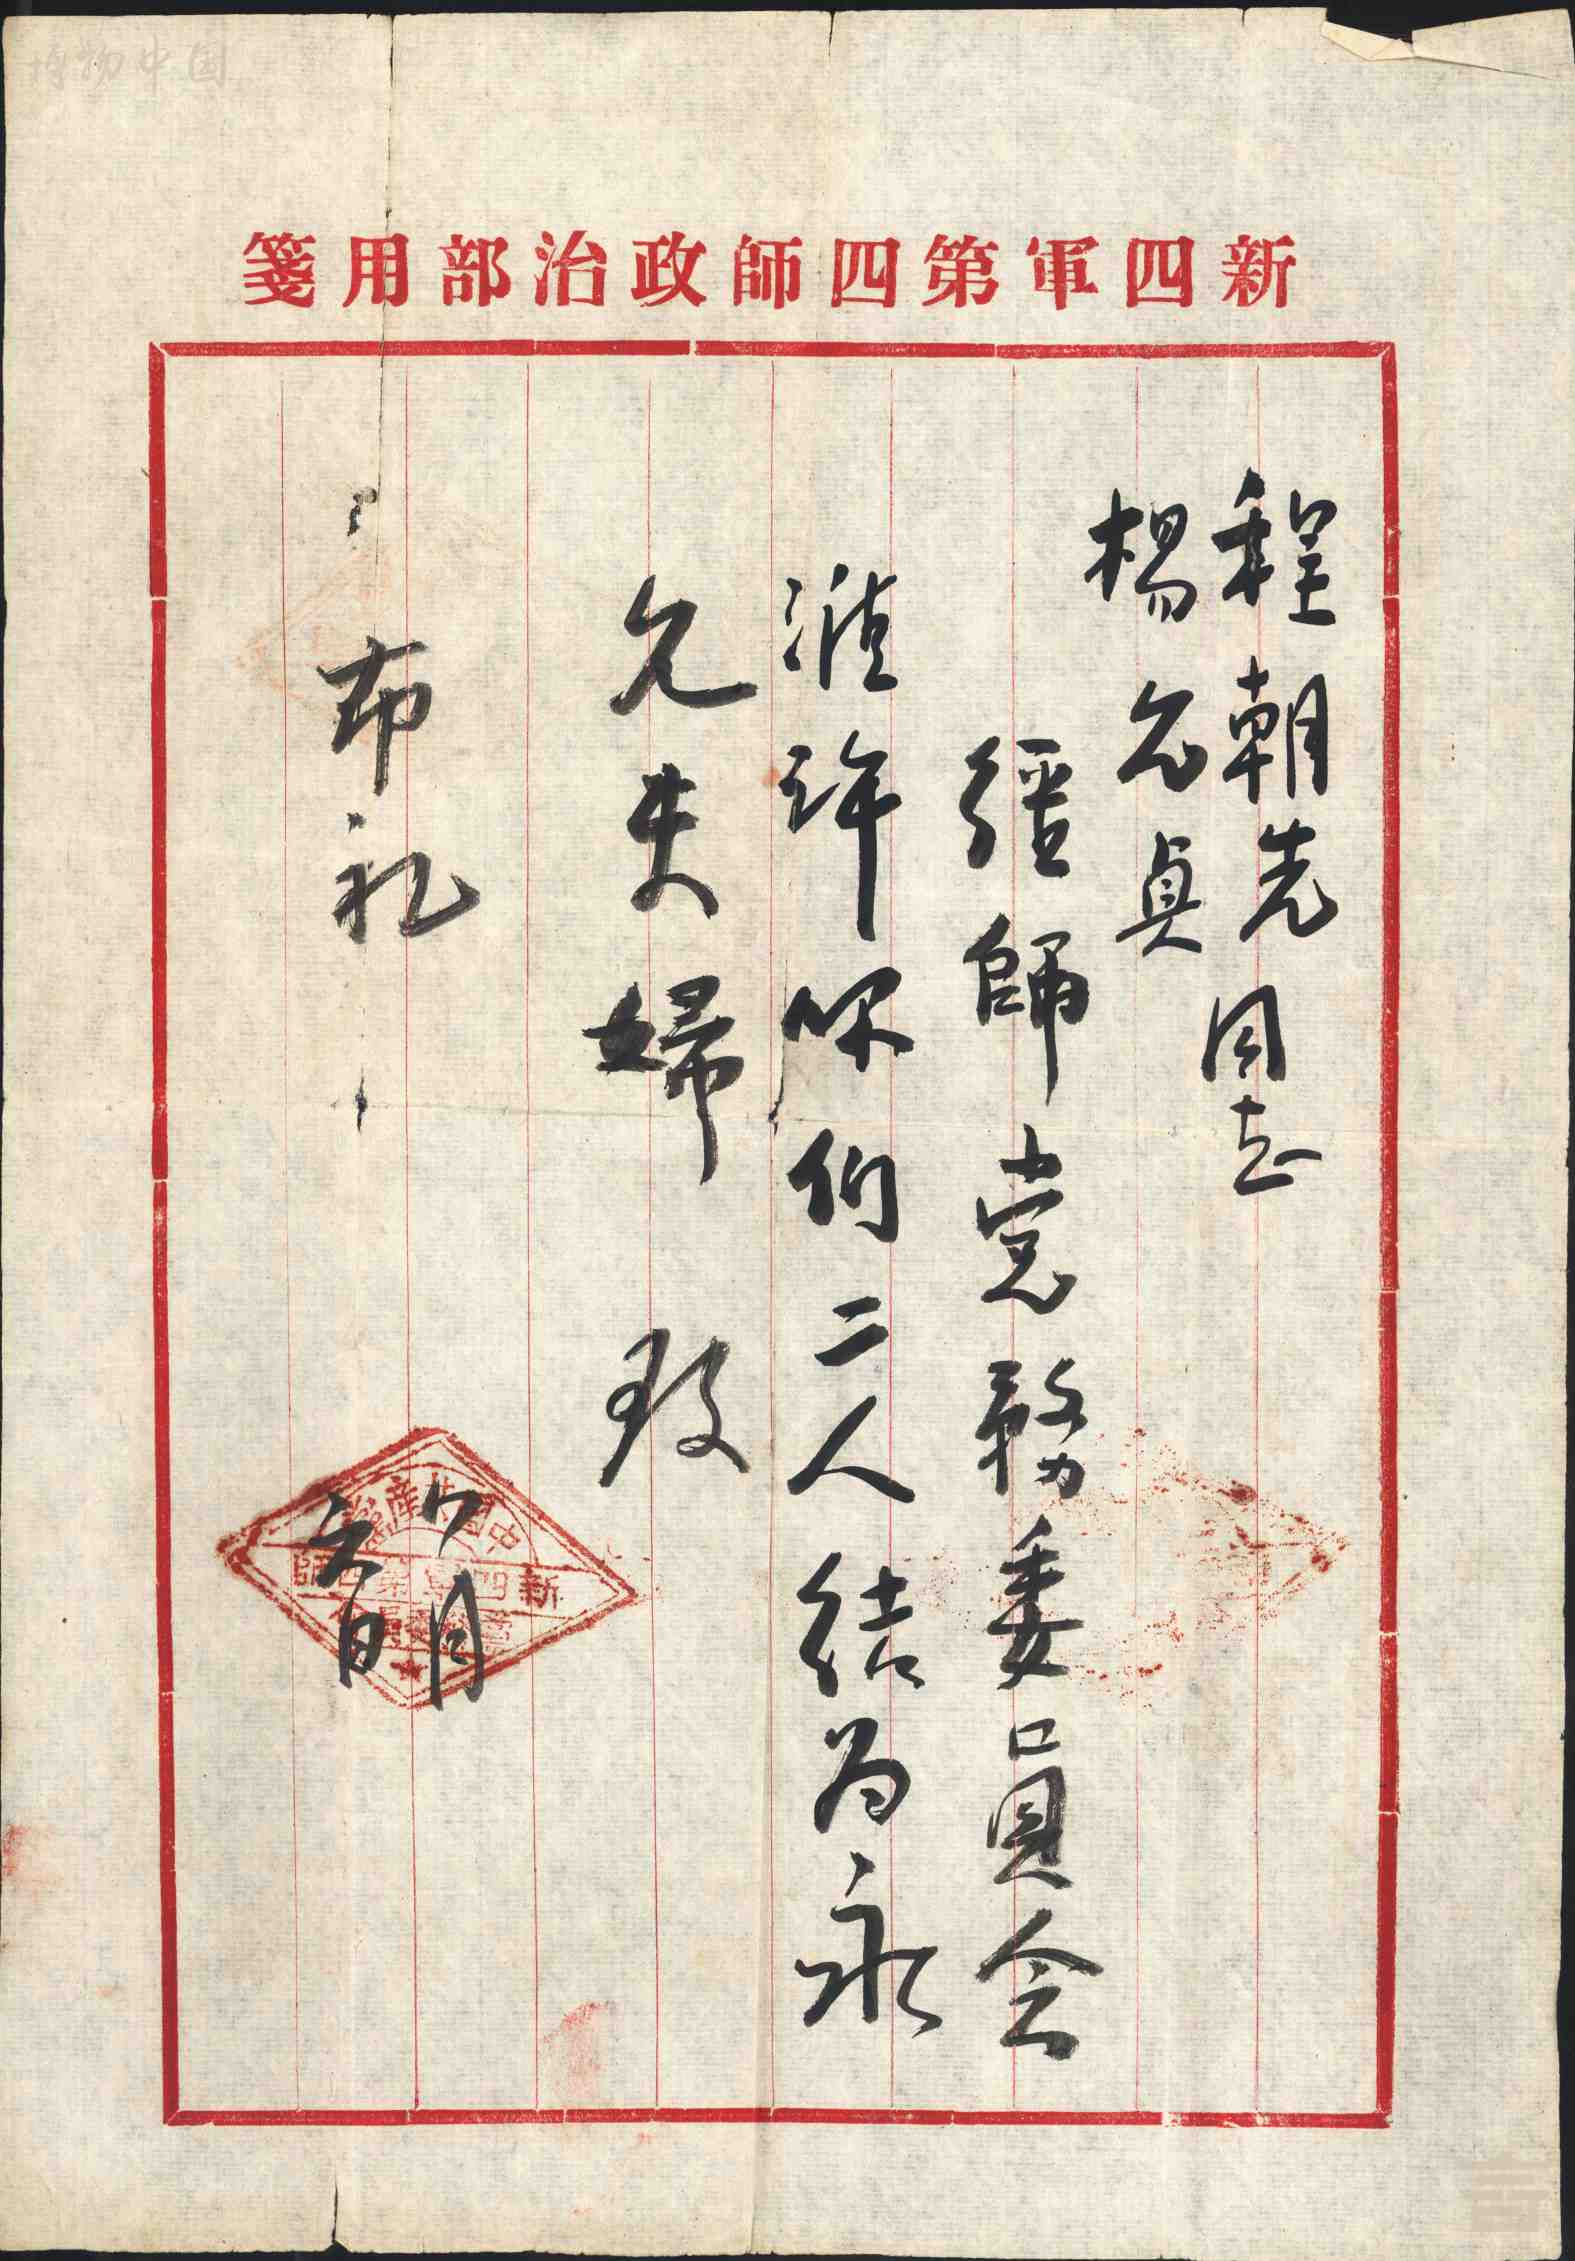 新四軍第四師政治部用箋
程朝先同志
楊允貞
經師党務委員会
准許你们二人结为永
久夫婦 致
布礼
八月
六日
中國共產黨
新四軍第四師
黨務委員會
博物中国